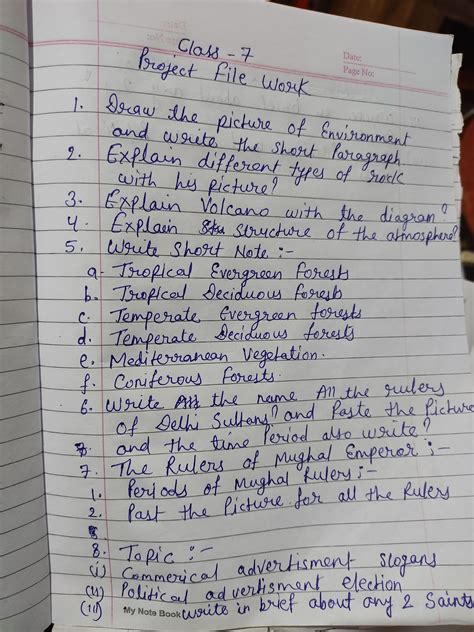 Date:
Page No:
Class - 7
Project file Work
1. Draw the picture of Environment
and write the short Paragraph
2. Explain different types of rock
with his picture?
3. Explain Volcano with the diagram?
4. Explain structure of the atmosphere?
5. Write Short Note :-
a- Tropical Evergreen forests
b. Tropical Deciduous forests
c. Temperate Evergreen forests
d. Temperate Deciduous forests
e. Mediterranean Vegetation.
f. Coniferous Forests.
6. Write the name All the rulers
of Delhi Sultans? and Paste the Picture
and the time Period also write?
7. The Rulers of Mughal Emperor :-
1. Periods of Mughal Rulers :-
2. Past the Picture for all the Rulers
8. Topic :-
(i) Commerical advertisment slogans
(ii) Political advertisment election
(iii) Write in brief about any 2 Saints
My Note Book